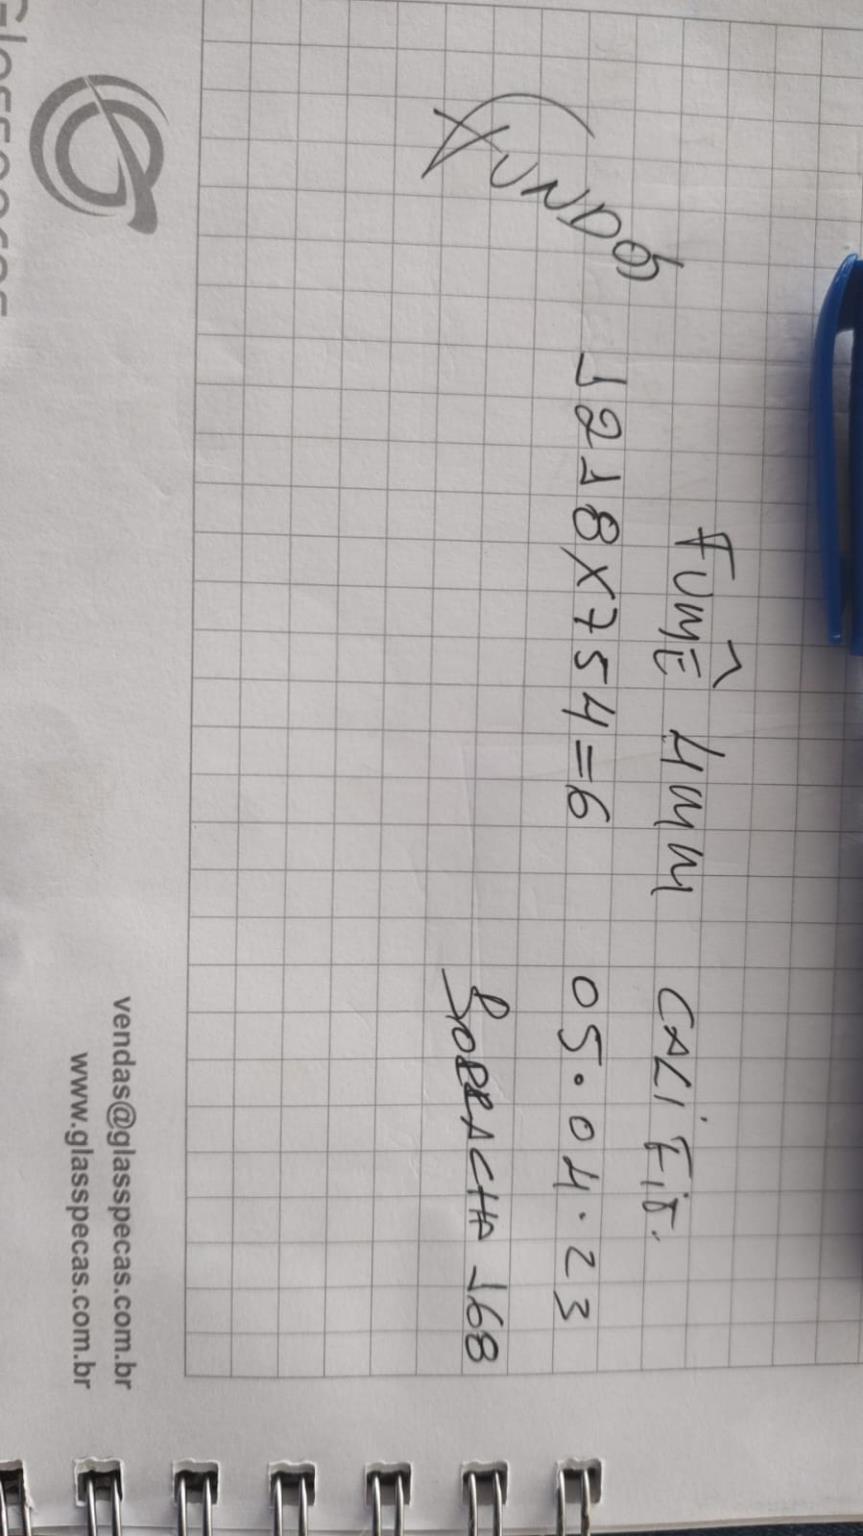 FUMÊ 4mm CALIFIT.
FUNDOS
1218X754=6
05.04.23
BORRACHA 168
vendas@glasspecas.com.br
www.glasspecas.com.br